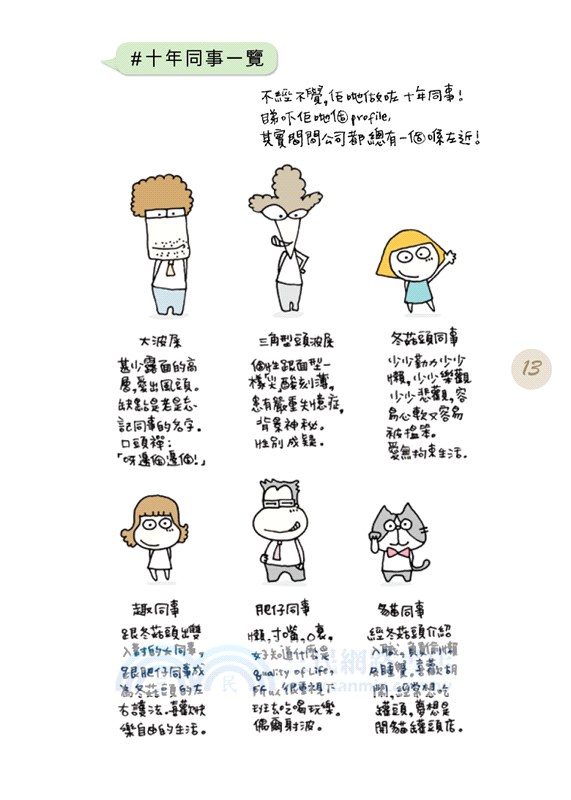 #十年同事一覽
不經不覺,佢哋做咗十年同事!
睇吓佢哋個profile,
其實間間公司都總有一個喺左近!
大波屎
甚少露面的高
層,愛出風頭。
缺點是老是忘
記同事的名字。
口頭禪:
「呀邊個邊個!」
三角型頭波屎
個性跟面型一
樣尖酸刻薄,
患有嚴重失憶症,
背景神秘。
性別成疑。
冬菇頭同事
少少勤力少少
懶,少少樂觀
少少悲觀,容
易心軟又容易
被搵笨。
愛無拘束生活。
13
趣同事
跟冬菇頭出雙
入對的女同事,
跟肥仔同事成
為冬菇頭的左
右護法。喜歡快
樂自由的生活。
肥仔同事
懶,寸嘴,口衰,
好知道什麼是
quality of life,
所以很重視下
班去吃喝玩樂。
偶爾射波。
貓貓同事
經冬菇頭介紹
入職。負責偷懶
及睡覺。喜歡胡
鬧,經常想吃
罐頭,夢想是
開貓罐頭店。